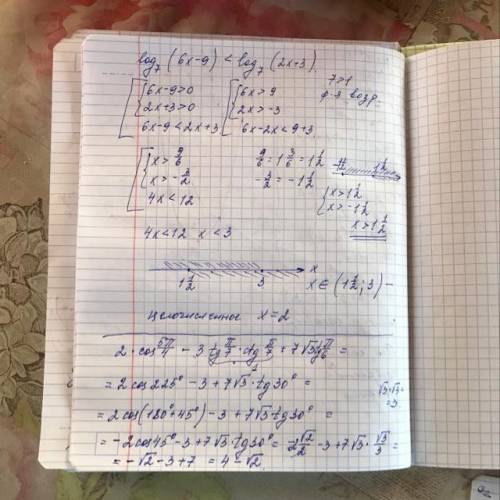 log₇(6x-9) < log₇(2x+3)
7>1
ф-я возр.
6x-9>0
2x+3>0
6x-9<2x+3
6x>9
2x>-3
6x-2x<9+3
x>9/6
x>-3/2
4x<12
9/6=1 3/6=1 1/2
-3/2=-1 1/2
1 1/2
x>1 1/2
x>-1 1/2
x>1 1/2
4x<12 x<3
1 1/2 3 x
x∈(1 1/2; 3) -
целочисленное x=2
2·cos 5π/4 - 3 tg π/7 · ctg π/7 + 7√3 tg π/6 =
= 2cos225° - 3 + 7√3·tg30° =
√3·√3=
=3
= 2cos(180°+45°) - 3 + 7√3·tg30° =
= -2cos45° - 3 + 7√3·tg30° = -2 √2/2 - 3 + 7√3·√3/3 =
= -√2 - 3 + 7 = 4 - √2